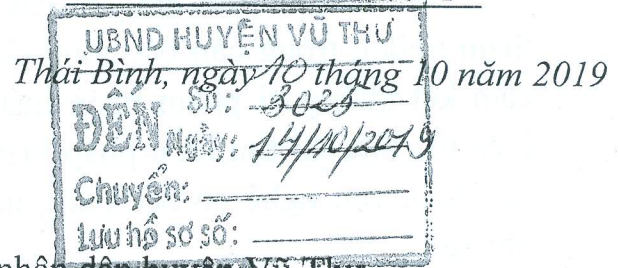 UBND HUYỆN VŨ THƯ
Thái Bình, ngày 10 tháng 10 năm 2019
ĐẾN
Số: 3025
Ngày: 14/10/2019
Chuyển:
Lưu hồ sơ số:
nhân dân huyện Vũ Thư